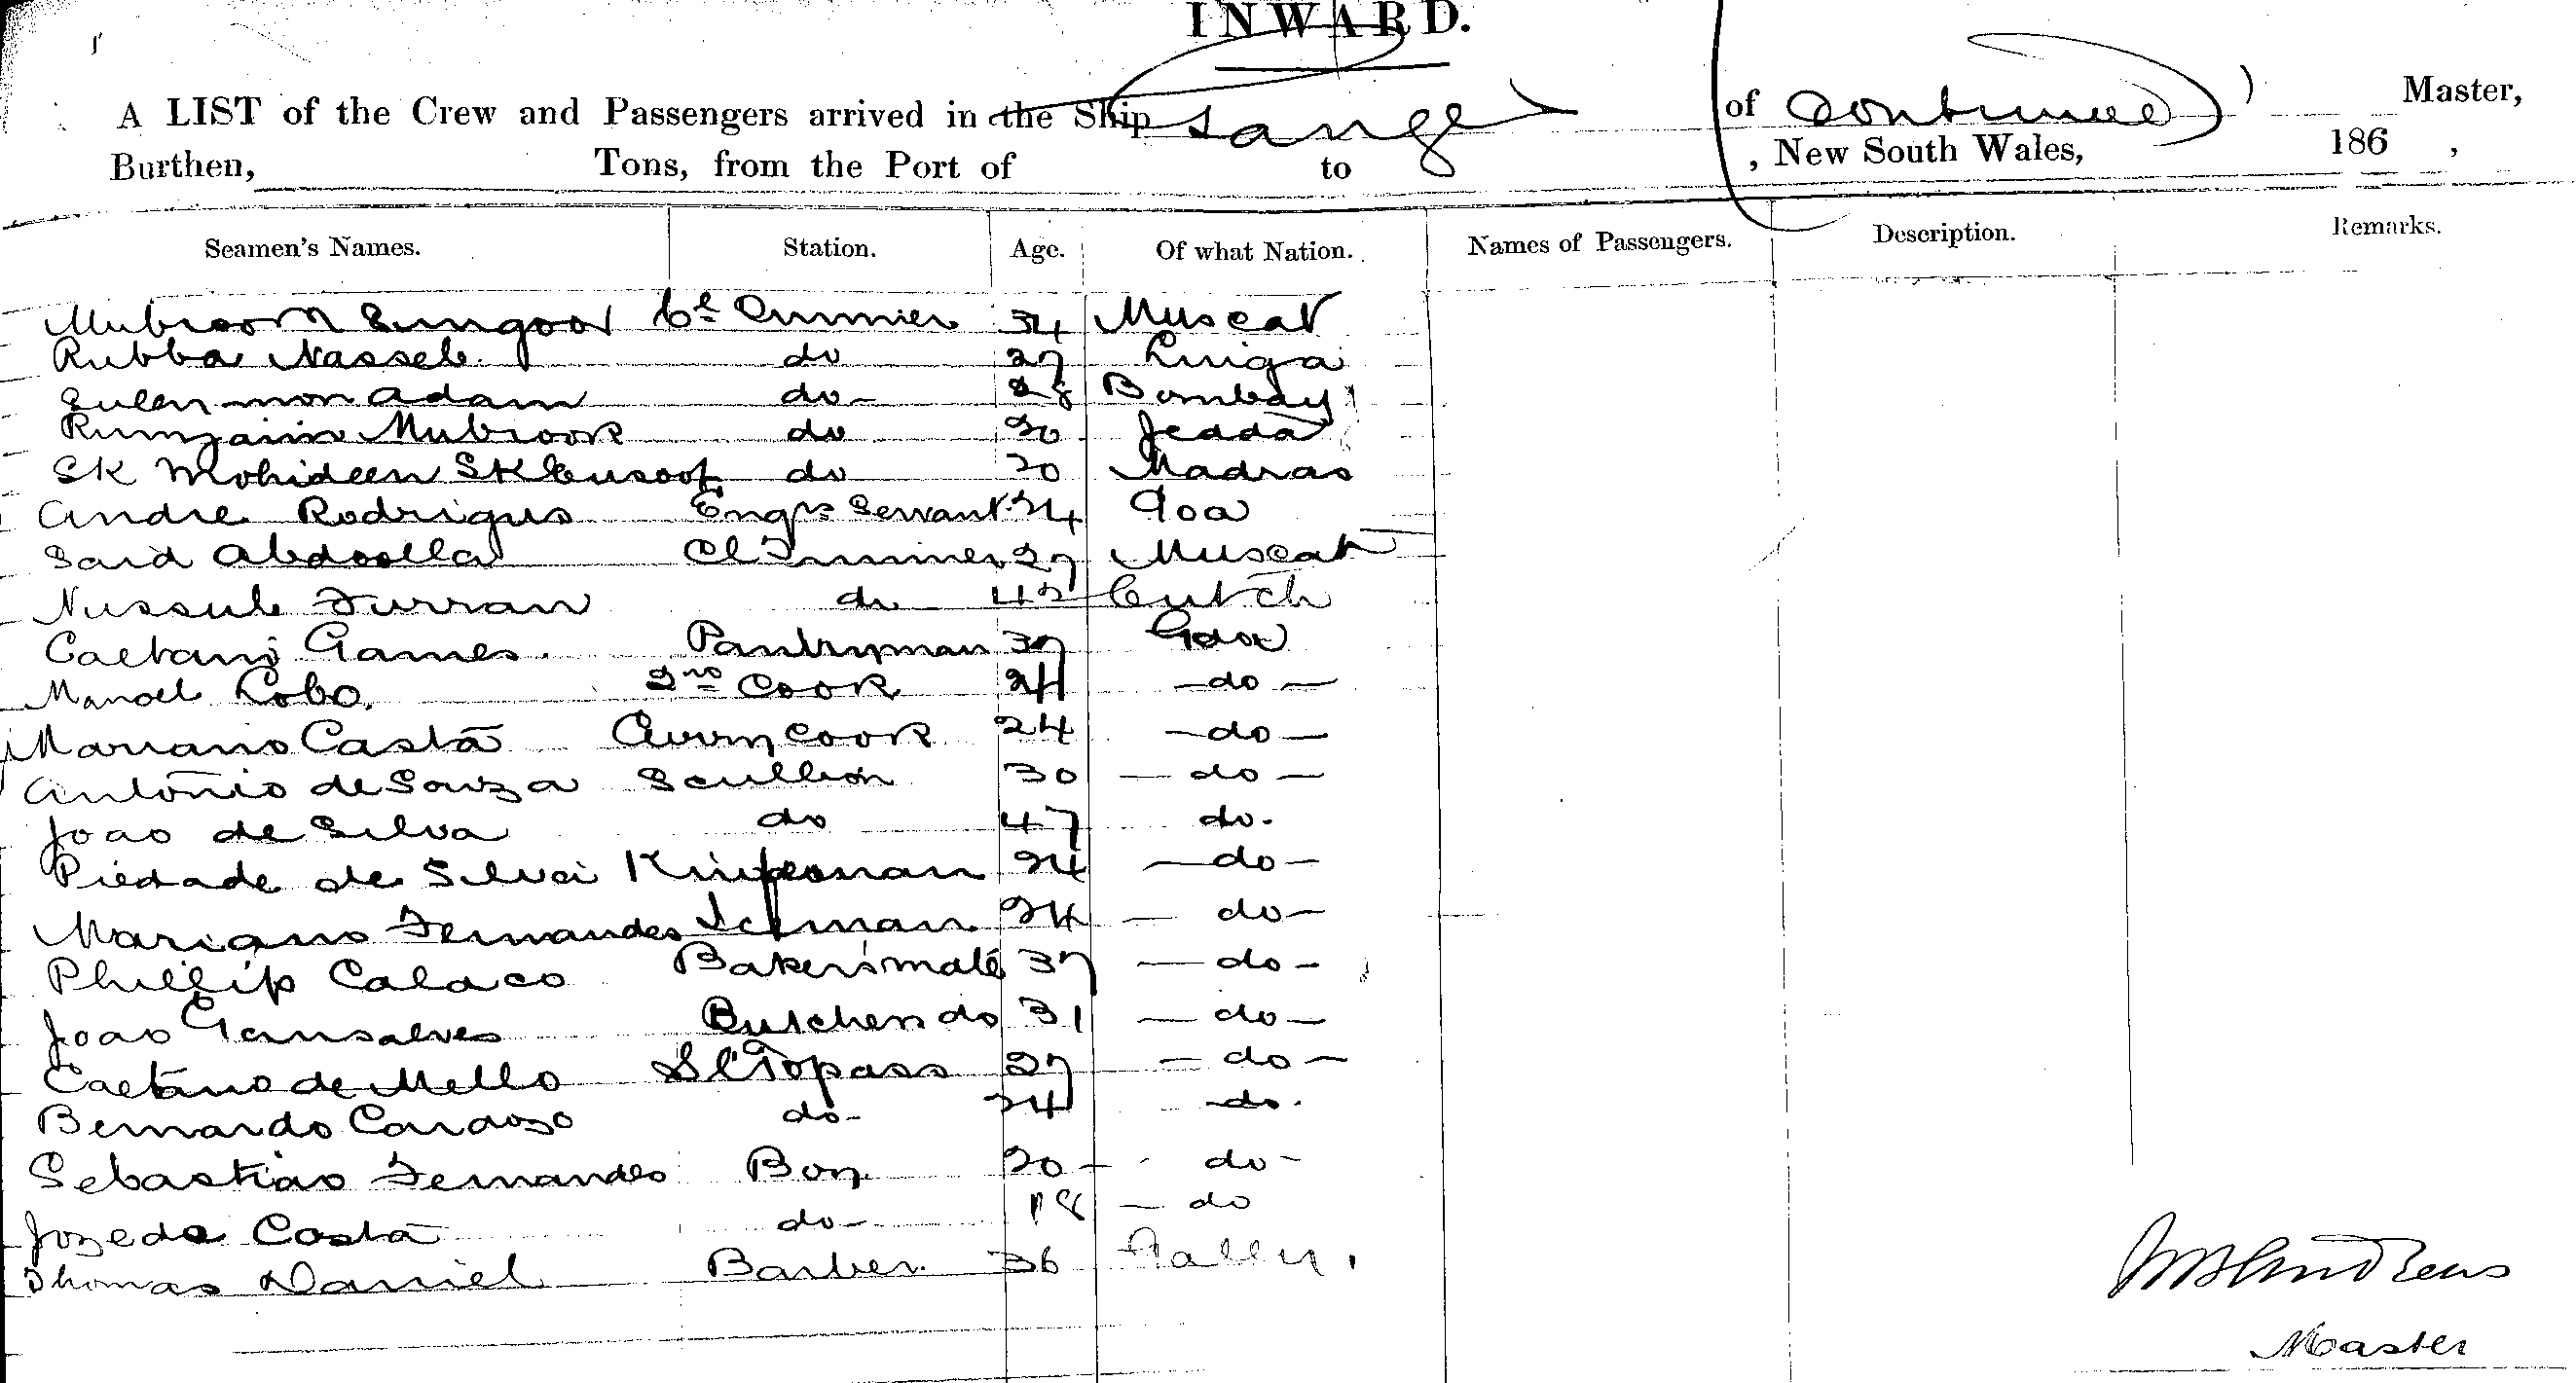 INWARD.
A LIST of the Crew and Passengers arrived in the Ship of Continued Master,
Burthen, Tons, from the Port of to , New South Wales, 186 ,
Seamen's Names. Station. Age. Of what Nation. Names of Passengers. Description. Remarks.
Mubrook 34 Muscat
Rubba Nasseb do 27 Linga
Suleymon Adam do- 28 Bombay
Mubrook do 30 Jedda
SK Mohideen SK Eusoof do 20 Madras
Andre Rodrigues Engrs Servant 24 Goa
Said Abdoolla Cl Trimmer 27 Muscat
Nussub Furran do 42 Cutch
Caetano Games Pantryman 37 Goa
Manoel Lobo. 2nd Cook 24 -do-
Mariano Casta Cook 24 -do-
Antonio de Souza Scullion 30 - do -
Joao de Silva do 47 do.
Piedade de Silva 24 -do-
Mariano Fernandes Iceman 24 - do-
Phillip Calaco Bakers mate 37 - do -
Joao Gonsalves Butchers do 31 - do-
Caetano de Mello Sl Topass 27 - do -
Bernardo Cardozo do- 24 do.
Sebastiao Fernandes Boy 20 do-
Joze da Costa do- 18 - do
Thomas Daniel Barber 36
Master